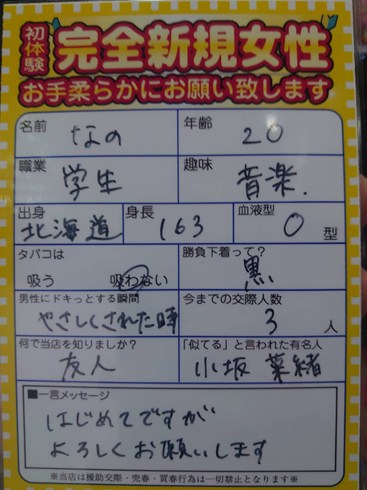 初体験 完全新規女性
お手柔らかにお願い致します
名前 なの 年齢 20
職業 学生 趣味 音楽.
出身 北海道 身長 163 血液型 O 型
タバコは 吸う 吸わない 勝負下着って? 黒
男性にドキっとする瞬間 やさしくされた時 今までの交際人数 3 人
何で当店を知りましたか? 友人 「似てる」と言われた有名人 小坂 菜緒
■一言メッセージ
はじめてですが
よろしくお願いします
※当店は援助交際・売春・買春行為は一切禁止となります※